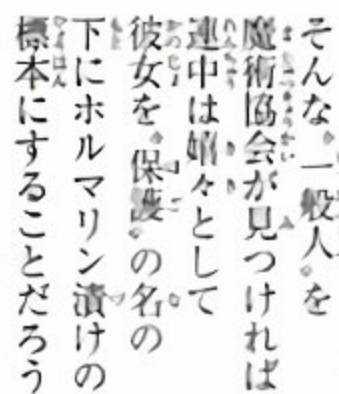 そんな〝一般人〟を
魔術協会が見つければ
連中は嬉々として
彼女を〝保護〟の名の
下にホルマリン漬けの
標本にすることだろう